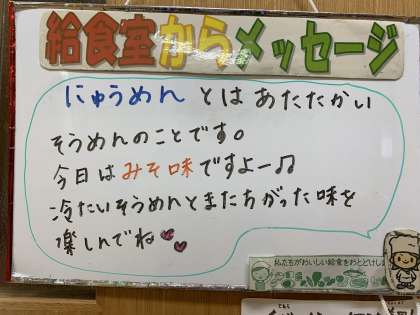 給食室からメッセージ
にゅうめん とは あたたかい
そうめんのことです。
今日はみそ味ですよー♫
冷たいそうめんとまたちがった味を
楽しんでね
私たちがおいしい給食をおとどけし